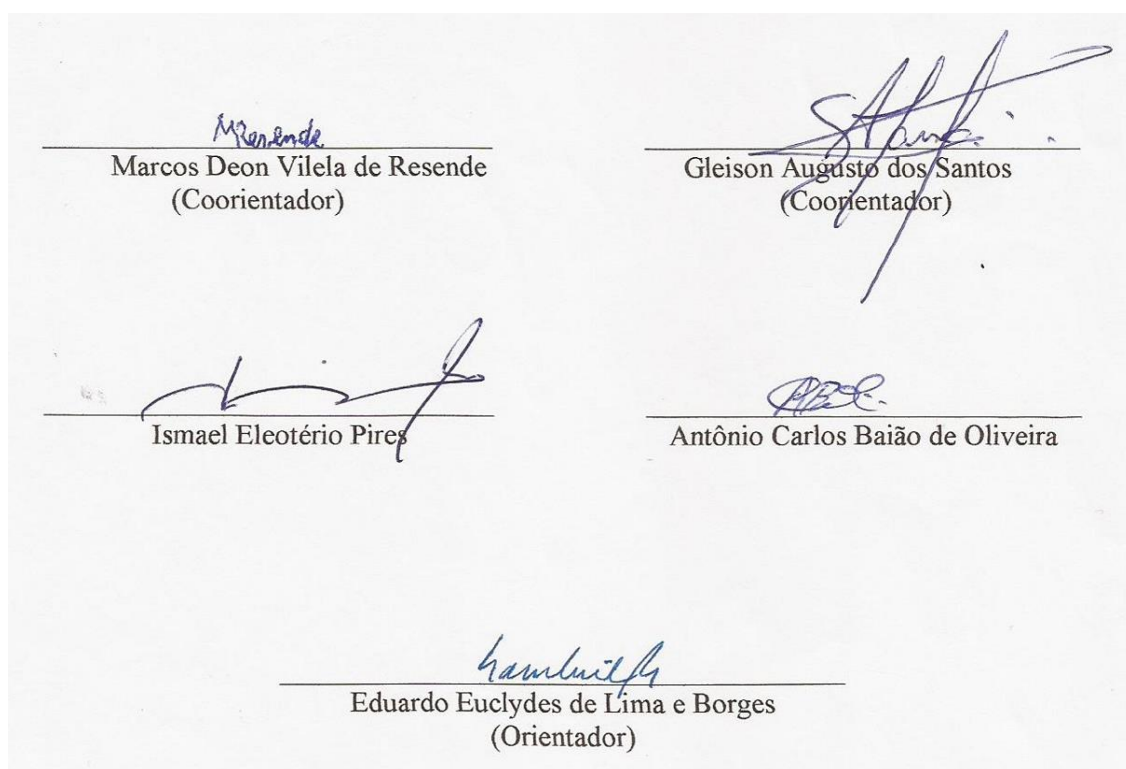 MResende
Marcos Deon Vilela de Resende
(Coorientador)
Gleison Augusto dos Santos
(Coorientador)
Ismael Eleotério Pires
Antônio Carlos Baião de Oliveira
Eduardo Euclydes de Lima e Borges
(Orientador)